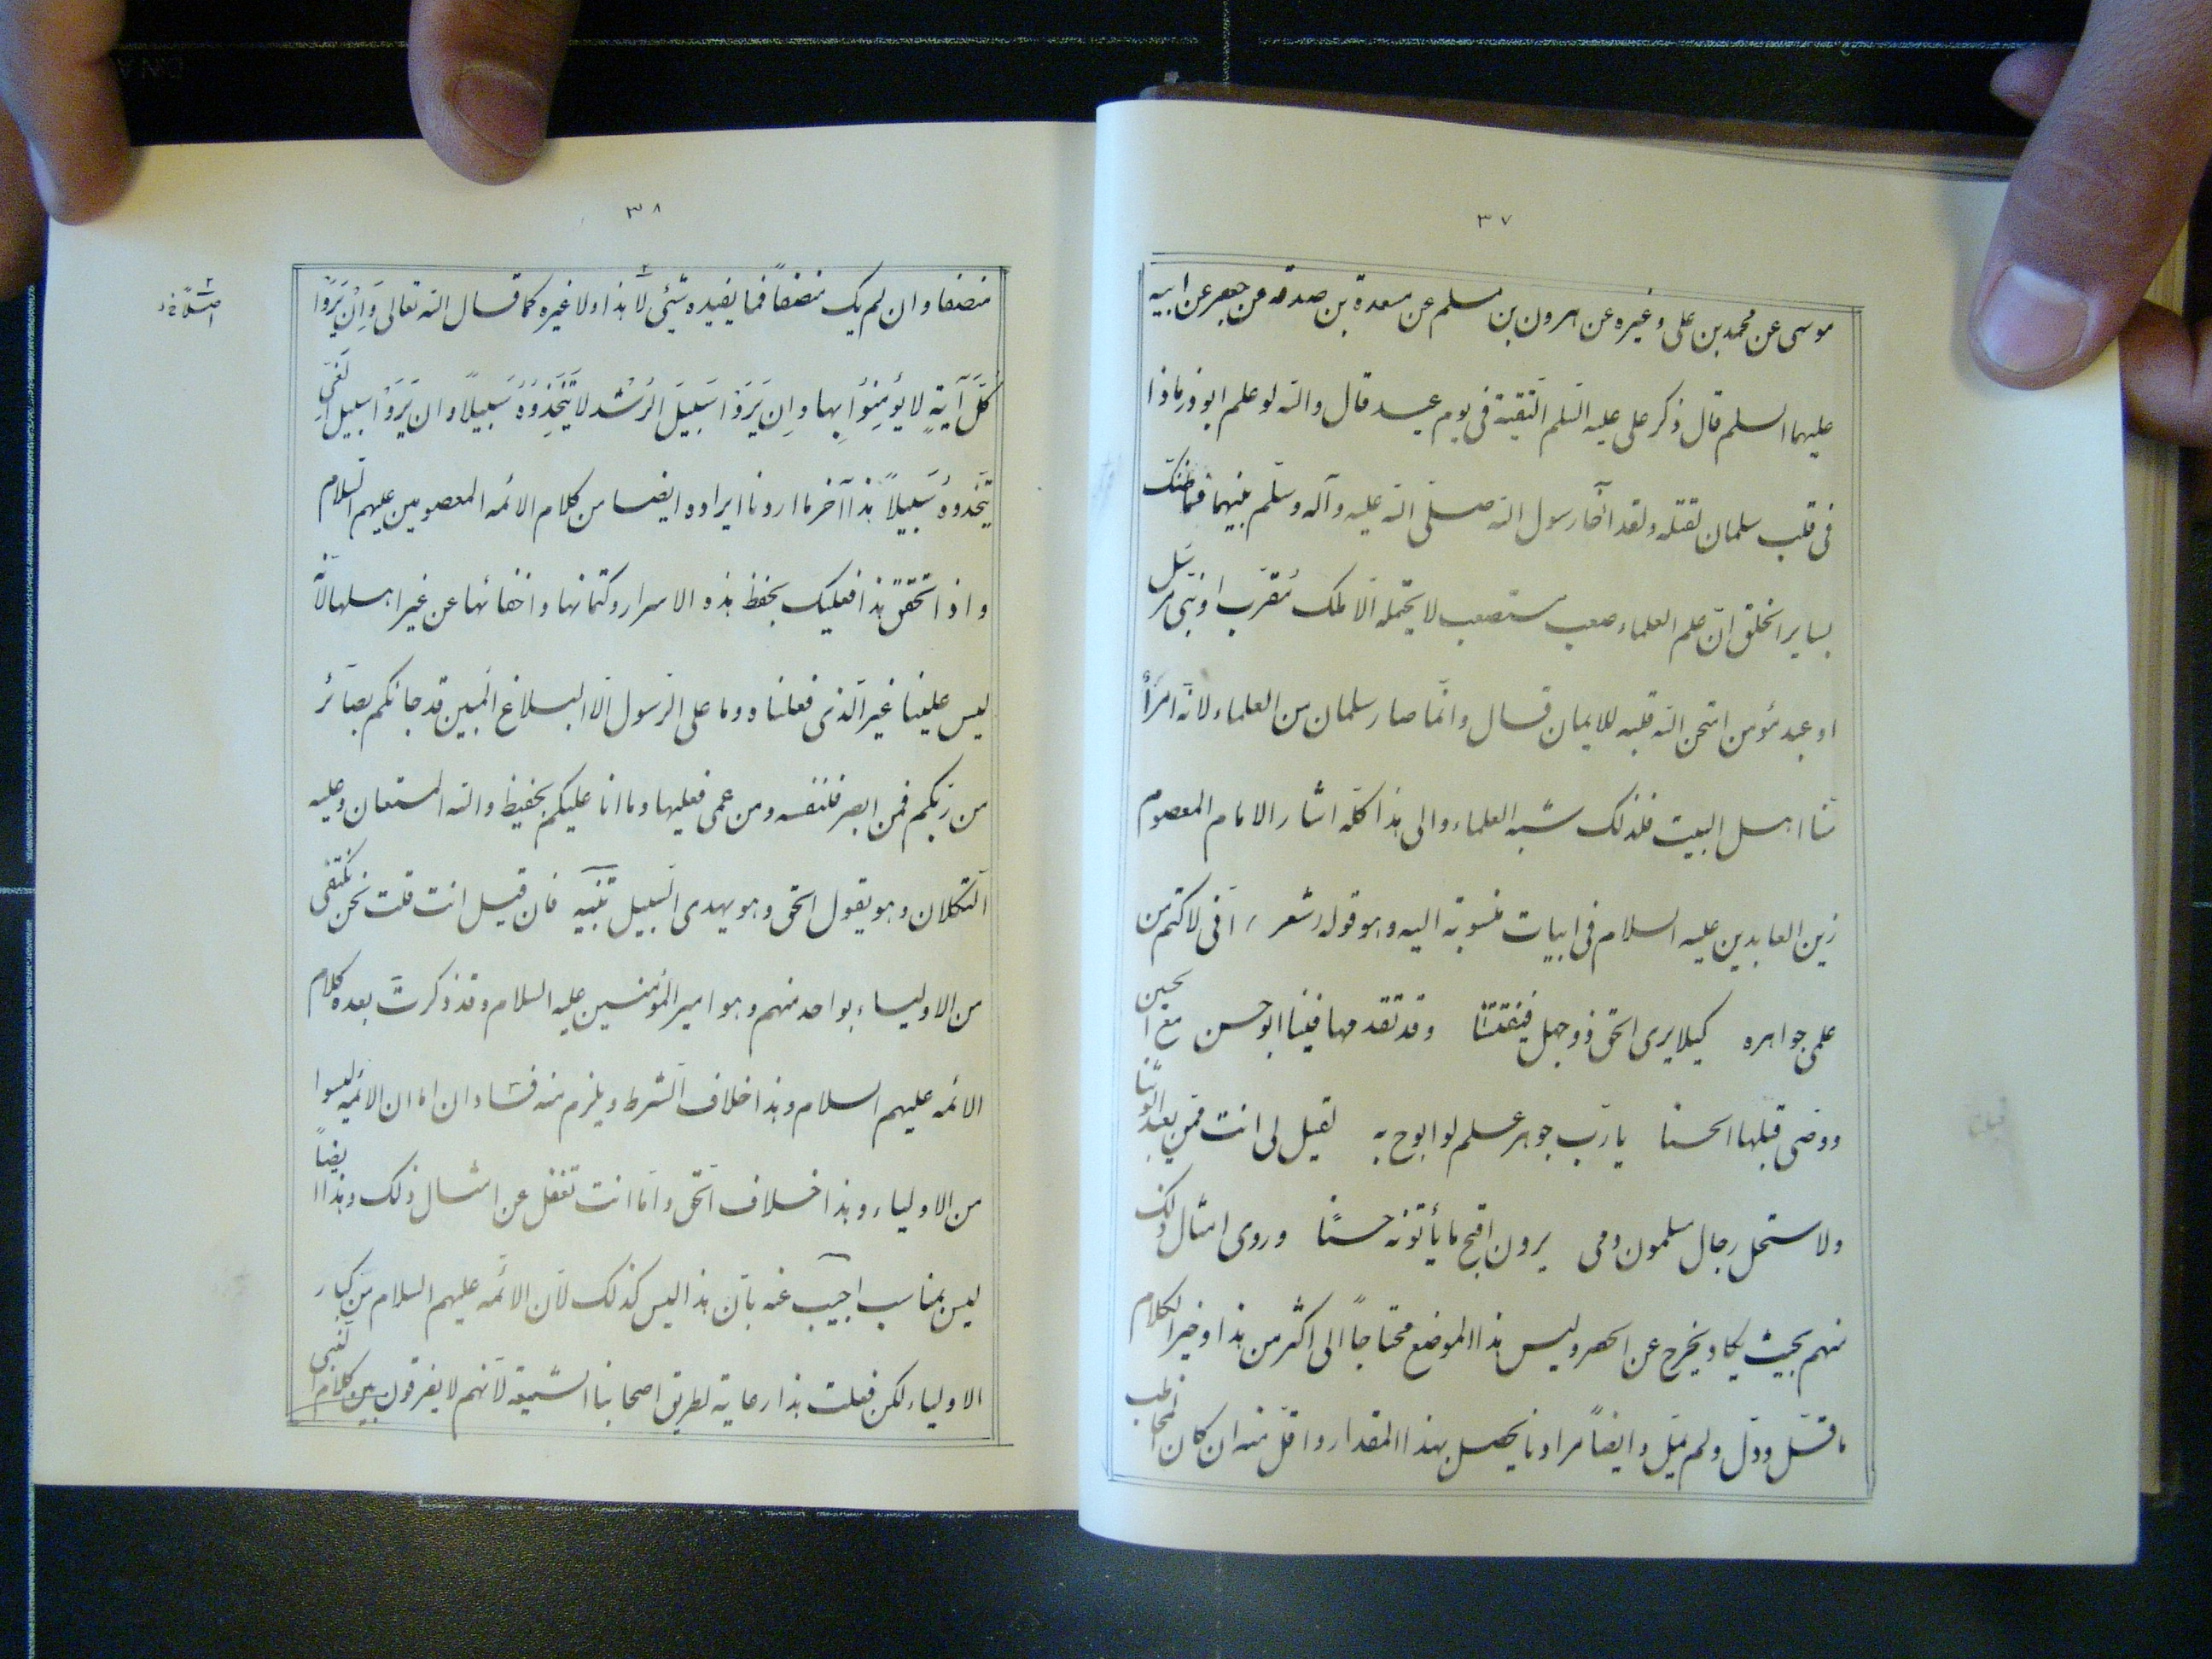 ٣٧
موسى عن محمد بن على وغيره عن هرون بن مسلم عن مسعدة بن صدقه عن جعفر عن ابيه
عليهما السلم قال ذكر على عليه السّلم التّقية فى يوم عيد قال واللّه لو علم ابوذر ماذا
فى قلب سلمان لقتله ولقد آخا رسول اللّه صلّى اللّه عليه وآله وسلّم بينهما فما ظنّك
بساير الخلق انّ علم العلماء صعب مستصعب لا يحتمله الّا ملك مُقرّب او نبّى مرسَل
او عبد مؤمن امتحن اللّه قلبه للايمان قال وانّما صار سلمان من العلماء لانّه امرَأ
منّا اهل البيت فلذلك شبه العلماء والى هذا كلّه اشار الامام المعصوم
زين العابدين عليه السلام فى ابيات منسوبة اليه وهو قوله شعر / انّى لاكتم من
علمى جواهره كيلا يرى الحق ذو جهل فيفتتنا وقد تقدمها فينا ابو حسن مع الحسين
ووصّى قبلها الحسنا يا ربّ جوهر علم لو ابوح به لقيل لى انت ممّن يعبد الوثنا
ولا ستحل رجال مسلمون دمى يرون اقبح ما يأتونه حسنًا وروى امثال ذلك
منهم بحيث يكاد يخرج عن الحصر وليس هذا الموضع محتاجًا الى اكثر من هذا وخير الكلام
ما قلّ ودلّ ولم يمَل وايضاً مرادنا يحصل بهذا المقدار واقلّ منه ان كان المخاطب
٣٨
منصفا وان لم يك منصفاً فما يفيده شئى لا هذا ولا غيره كما قال اللّه تعالى وَاِنْ يَرَوْا
كُلَّ آيَةٍ لا يُؤمِنُوُا بِها واِن يَرَوْا سَبيلَ الرُشد لا يَتَّخِذِوُهُ سَبيلاً وان يَرَوْا سبيل الغَىِّ
يَتَّخذوهُ سَبيلاً هذا آخر ما اردنا ايراده ايضا من كلام الائمه المعصومين عليهم السّلام
واذا تحقّق هذا فعليك بحفظ هذه الاسرار وكتمانها واخفائها عن غير اهلها لانّه
ليس علينا غير الّذى فعلناه وما على الرّسول الّا البلاغ المبين قد جائكم بصائر
من ربّكم فمن ابصر فلنفسه ومن عمى فعليها وما انا عليكم بحفيظ واللّه المستعان وعليه
التكلان وهو يقول الحق وهو يهدى السّبيل تنبيه فان قيل انت قلت نحن نكتفى
من الاولياء بواحد منهم وهو امير المؤمنين عليه السلام وقد ذكرتَ بعده كلام
الائمه عليهم السلام وهذا خلاف الشرط ويلزم منه فسادان اما ان الائمّه ليسوا
من الاولياء وهذا خلاف الحق وامّا انت تغفل عن امثال ذلك وهذا ايضاً
ليس بمناسب اجيب عنه بأنّ هذا ليس كذلك لأن الائمّه عليهم السلام من كبار
الاولياء لكن فعلت هذا رعاية لطريق اصحابنا الشّيعة لانّهم لا يفرقون بين كلام النّبى